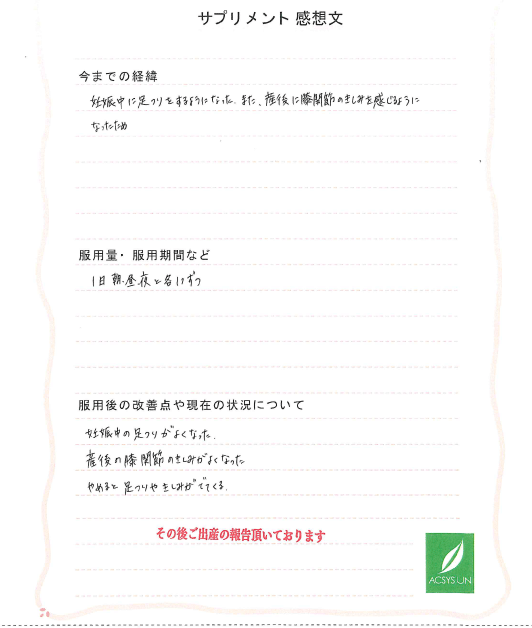 サプリメント 感想文
今までの経緯
妊娠中に足つりをするようになった。また、産後に膝関節のきしみを感じるように
なったため
服用量・服用期間など
1日 朝、昼、夜と各1ずつ
服用後の改善点や現在の状況について
妊娠中の足つりがよくなった。
産後の膝関節のきしみがよくなった
やめると足つりやきしみがでてくる。
その後ご出産の報告頂いております
ACSYS UN